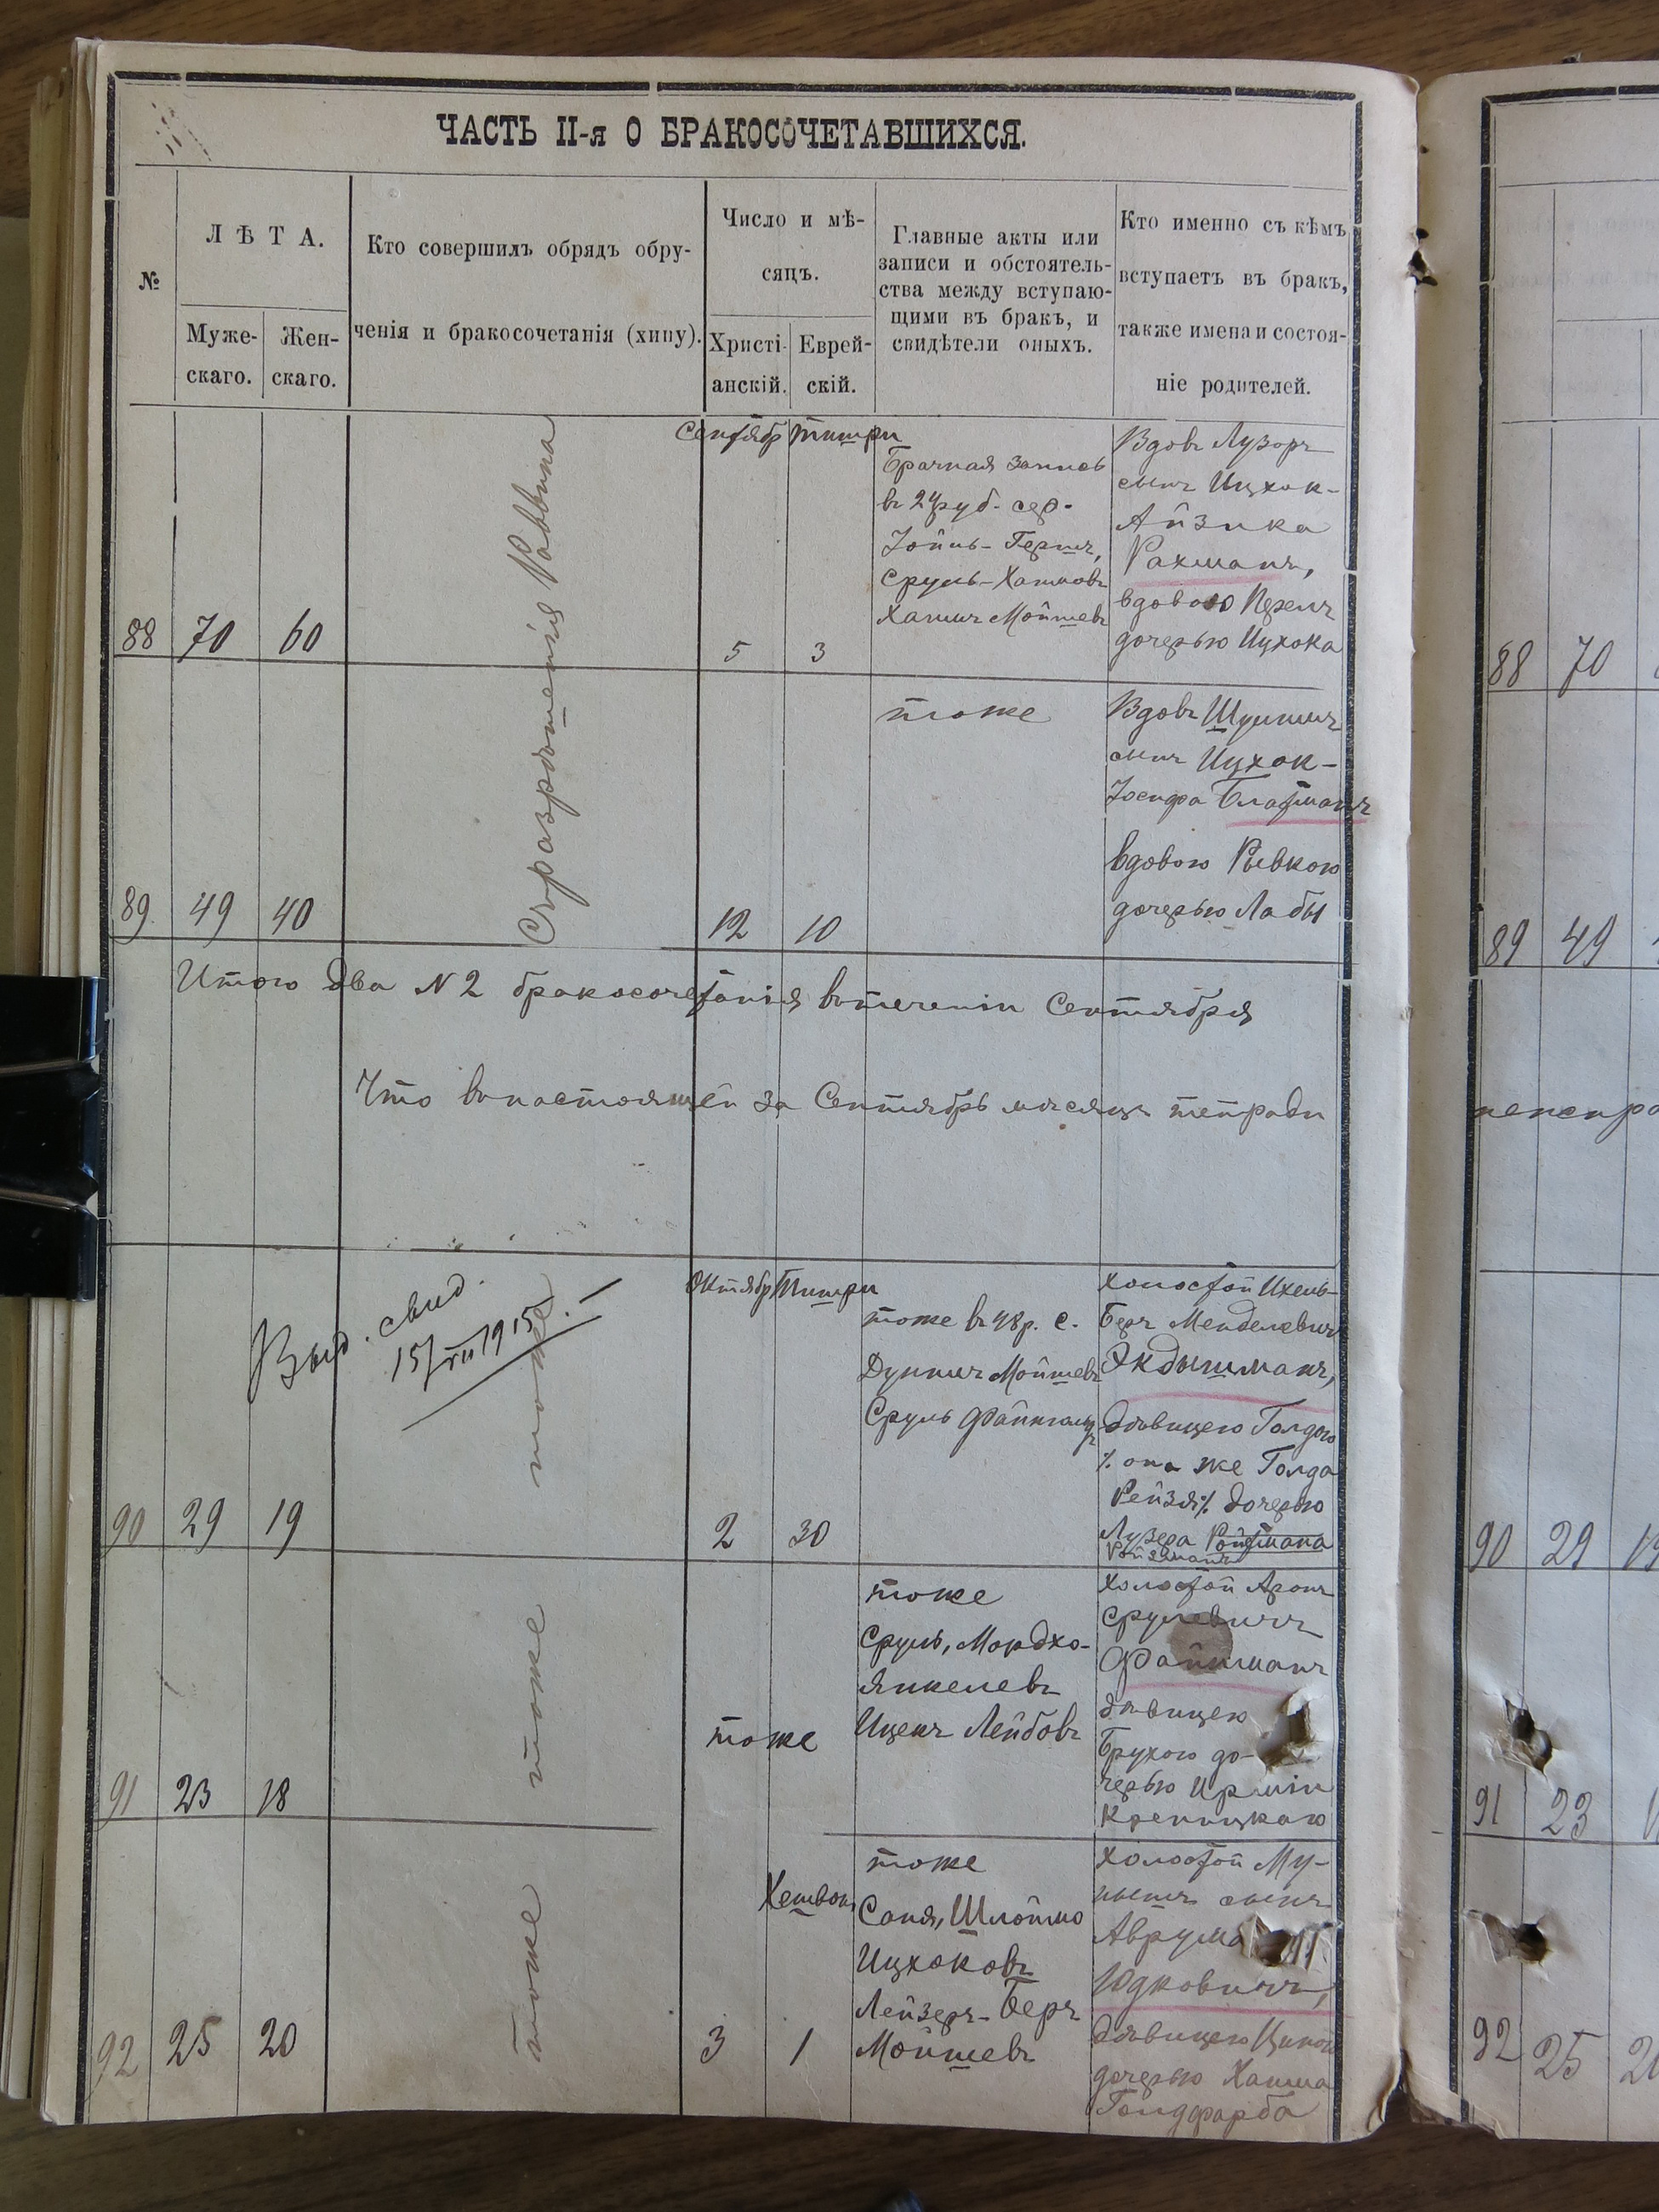 ЧАСТЬ II-я О БРАКОСОЧЕТАВШИХСЯ.
№
ЛѢТА.
Муже-
скаго.
Жен-
скаго.
Кто совершилъ обрядъ обру-
ченія и бракосочетанія (хипу).
Число и мѣ-
сяцъ.
Христі-
анскій.
Еврей-
скій.
Главные акты или
записи и обстоятель-
ства между вступаю-
щими въ бракъ, и
свидѣтели оныхъ.
Кто именно съ кѣмъ
вступаетъ въ бракъ,
также имена и состоя-
ніе родителей.
88
70
60
Съ разрѣшенія Раввина
Сентябр
Тишри
5
3
Брачная запись
въ 24 руб. сер.
Іойнъ-Гершъ,
Сруль-Хаимовъ
Хаимъ Мойшевъ
Вдовъ Лузоръ
сынъ Ицхок-
Айзика
Рахманъ,
вдовою
дочерью Ицхока
89
49
40
12
10
тоже
Вдовъ
сынъ Ицхок-
Іосифа Блатманъ
вдовою Рывкою
дочерью Лабы
Итого два № 2 бракосочетанія втеченіи Сентября
Что внастоящей за Сентябрь мѣсяцъ тетради
Выд. свид.
15/VII 1915 г. —
90
29
19
тоже
Октябр
Тишри
2
30
тоже въ 48 р. с.
Мойшевъ
Сруль
холостой Ихель-
Беръ Менделевичъ
Экдышманъ,
дѣвицею Голдою
% она же Голда
Рейзя % дочерью
Лузера Ройтмана
Ройзмана
91
23
18
тоже
тоже
тоже
Сруль, Мордхо-
Янкелевъ
Иценъ Лейбовъ
холостой Аронъ
Срулевичъ
Файнманъ
дѣвицею
Брухою до-
черью
92
25
20
тоже
Хешвон
3
1
тоже
Саня, Шлоймо
Ицхоковъ
Лейзеръ-Беръ
Мойшевъ
холостой Му-
нышъ сынъ
Аврума
Юдковичъ,
дѣвицею
дочерью Хаима
Голдфарба
88
70
89
49
90
29
91
23
92
25